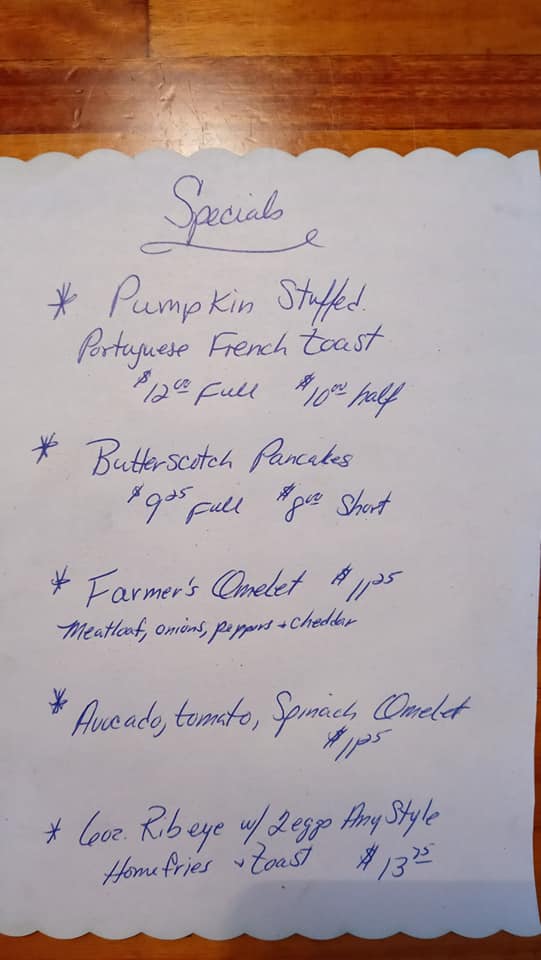 Specials
* Pumpkin Stuffed
Portuguese French toast
$12.00 Full $10.00 half
* Butterscotch Pancakes
$9.25 Full $8.00 Short
* Farmer's Omelet $11.25
Meatloaf, onions, peppers + cheddar
* Avocado, tomato, Spinach Omelet
$11.25
* 6oz. Ribeye w/ 2 eggs Any Style
Homefries + toast $13.75